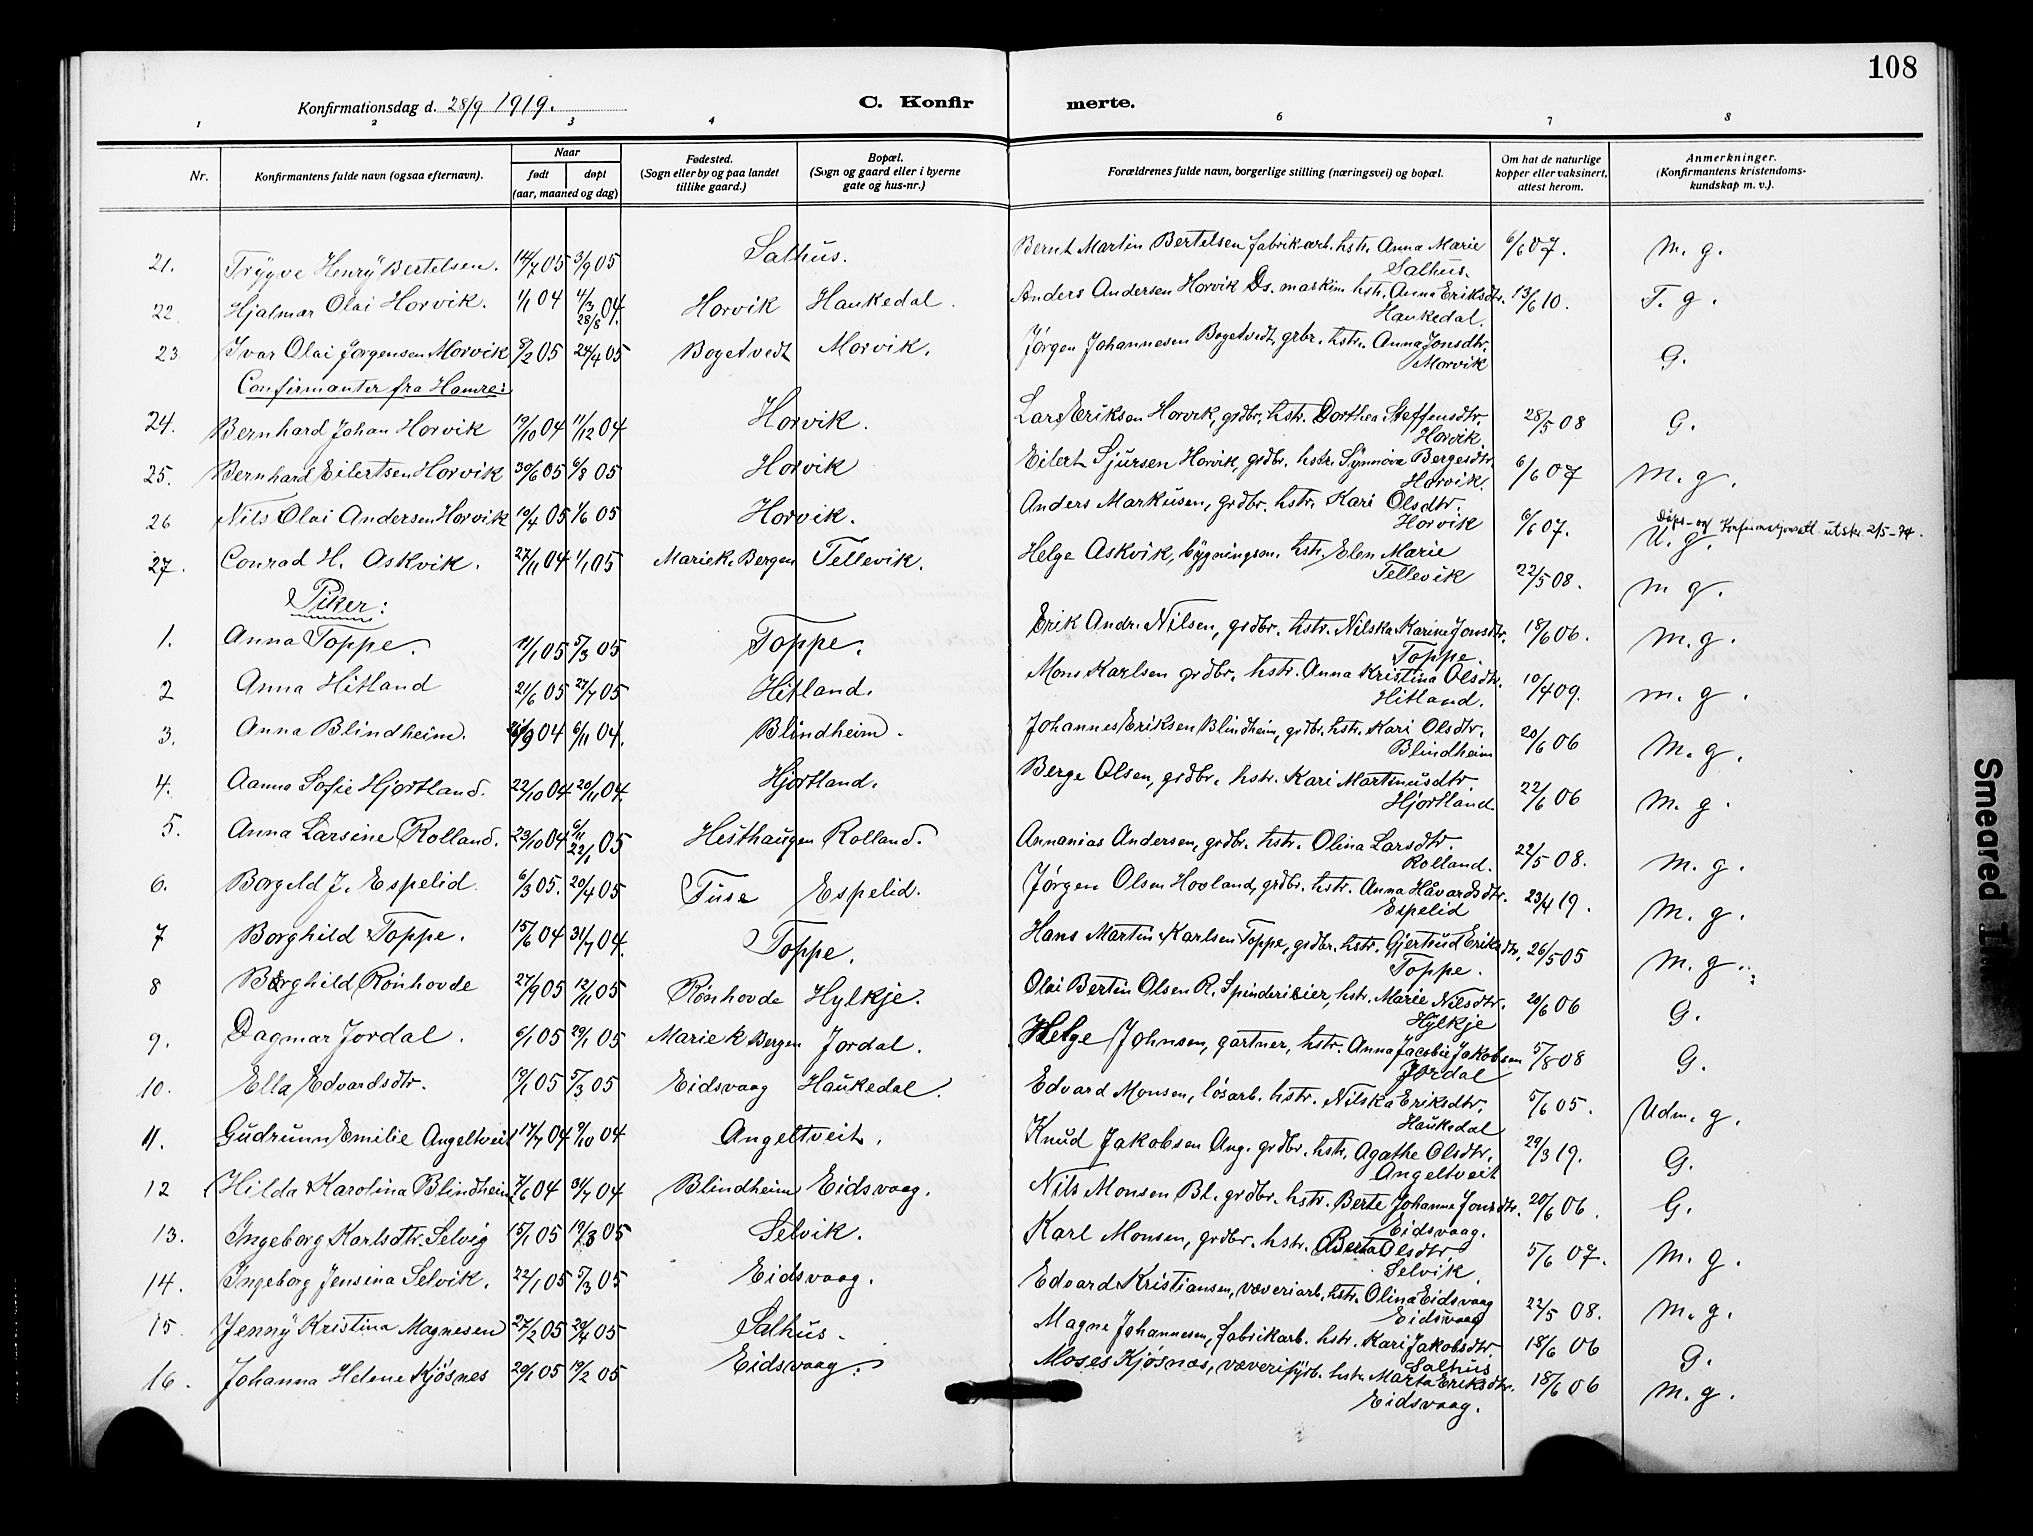 108
Konfirmationsdag d. 28/9 1919.
C. Konfir merte.
1 2 3 4 6 7 8
Nr. Konfirmantens fulde navn (ogsaa efternavn). Naar født døpt (aar, maaned og dag) Fødested. (Sogn eller by og paa landet tillike gaard.) Bopæl. (Sogn og gaard eller i byerne gate og hus-nr.) Forældrenes fulde navn, borgerlige stilling (næringsvei) og bopæl. Om hat de naturlige kopper eller vaksinert, attest herom. Anmerkninger. (Konfirmantens kristendoms-kundskap m. v.).
21. Trygve Henry Bertelsen. 14/7 05 3/9 05 Salhus. Bernt Martin Bertelsen fabrikarb. hstr. Anna Marie Salhus. 6/6 07. M. g.
22. Hjalmar Olai Horvik. 1/1 04 4/13 28/8 04. Horvik Haukedal. Anders Andersen Horvik Ds. maskim hstr. Anna Eriksdtr. Haukedal. 13/6 10. T. g.
23 Ivar Olai Jørgensen Morvik 8/2 05 24/4 05 Bogetvedt Morvik. Jørgen Johannesen Bogetvedt, grbr. hstr. Anna Jonsdtr. Morvik G.
Confirmanter fra Hamre:
24. Bernhard Johan Horvik 19/10 04 11/12 04 Horvik. Lars Eriksen Horvik, grdbr, hstr. Dorthea Steffensdtr. Horvik 28/5 08 G.
25. Bernhard Eilertsen Horvik 30/6 05 6/8 05 Horvik Eilert Sjursen Horvik, grdbr. hstr. Synnøva Bergesdtr. Horvik. 6/6 07 M. g.
26 Nils Olai Andersen Horvik 10/4 05 1/6 05 Horvik. Anders Markusen, grdbr. hstr. Kari Olsdtr. Horvik 6/6 07. U. g. Dåps- og Konfirmasjonsatt. utskr. 2/5-74.
27. Conrad H. Askvik. 27/11 04 1/1 05 Mariek. Bergen Tellevik. Helge Askvik, bygningsm. hstr. Elen Marie Tellevik 22/5 08. M g.
Piker:
1. Anna Toppe. 11/1 05 5/3 05 Toppe. Erik Andr. Nilsen, grdbr. hstr. Nilska Karine Jonsdtr. Toppe 18/6 06. M. g.
2 Anna Hitland 21/6 05 27/7 05 Hitland. Mons Karlsen grdbr. hstr. Anna Kristina Olsdtr. Hitland. 10/4 09. M. g.
3. Anna Blindheim. 26/9 04 6/11 04. Blindheim. Johannes Eriksen Blindheim, grdbr. hstr. Kari Olsdtr. Blindheim 20/6 06 M. g.
4. Aanna Sofie Hjortland. 22/10 04 20/11 04. Hjortland. Berge Olsen, grdbr. hstr. Kari Martinusdtr. Hjortland 22/6 06 M. g.
5. Anna Larsine Rolland. 23/10 04 6/11 22/1 05 Hesthaugen Rolland. Annanias Andersen, grdbr. hstr. Olina Larsdtr. Rolland. 22/5 08. M. g.
6. Borgeld J. Espelid 6/3 05. 20/4 05 Tuse Espelid. Jørgen Olsen Hovland, grdbr. hstr. Anna Håvardsdtr. Espelid 23/4 19. M. g.
7 Borghild Toppe. 15/6 04 31/7 04. Toppe. Hans Martin Karlsen Toppe, grdbr. hstr. Gjertrud Eriksdtr. Toppe. 26/5 05 M. g.
8 Borghild Rønhovde 27/9 05 12/11 05 Rønhovde Hylkje. Olai Bertin Olsen R. Spinderieier, hstr. Marie Nilsdtr. Hylkje 20/6 06 G.
9. Dagmar Jordal. 6/1 05 29/1 05 Marie k Bergen Jordal. Helge Johnsen, gartner, hstr. Anna Jacobie Jakobsen Jordal 5/8 08 G.
10. Ella Edvardsdtr. 19/1 05 5/3 05 Eidsvaag Haukedal. Edvard Monsen, løsarb. hstr. Nilska Eriksdtr. Haukedal 5/6 05. Udm. g.
11. Gudrunn Emilie Angeltveit 17/7 04 9/10 04 Angeltveit. Knud Jakobsen Ang. grdbr. hstr. Agathe Olsdtr. Angeltveit 29/3 19. G.
12 Hilda Karolina Blindheim 7/6 04 31/7 04 Blindheim Eidsvaag. Nils Monsen Bl. grdbr. hstr. Berte Johanne Jonsdtr. Eidsvaag. 20/6 06. G.
13. Ingeborg Karlsdtr. Selvig 15/1 05 19/3 05 Selvik. Karl Monsen, grdbr. hstr. Berta Olsdtr Selvik. 5/6 07. M. g.
14. Ingeborg Jensina Selvik. 22/1 05 5/3 05 Eidsvaag. Edvard Kristiansen, væveriarb. hstr. Olina Eidsvaag Eidsvaag 22/5 08. M. g.
15. Jenny Kristina Magnesen 27/2 05 20/4 05 Salhus. Magne Johannesen, fabrikarb. hstr. Kari Jakobsdtr. Salhus 18/6 06 G.
16. Johanna Helene Kjøsnes 20/1 05 19/2 05 Eidsvaag. Moses Kjøsnæs, væverifyrb. hstr. Marta Eriksdtr. Eidsvaag. 18/6 06 M. g.
Smeared